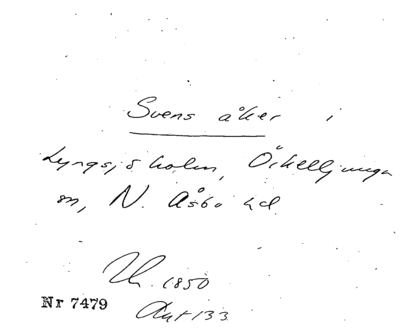 Svens åker i
Lyngsjöholm, Örkelljunga
sn, N. Åsbo hd
1850
Nr 7479
Akt 133